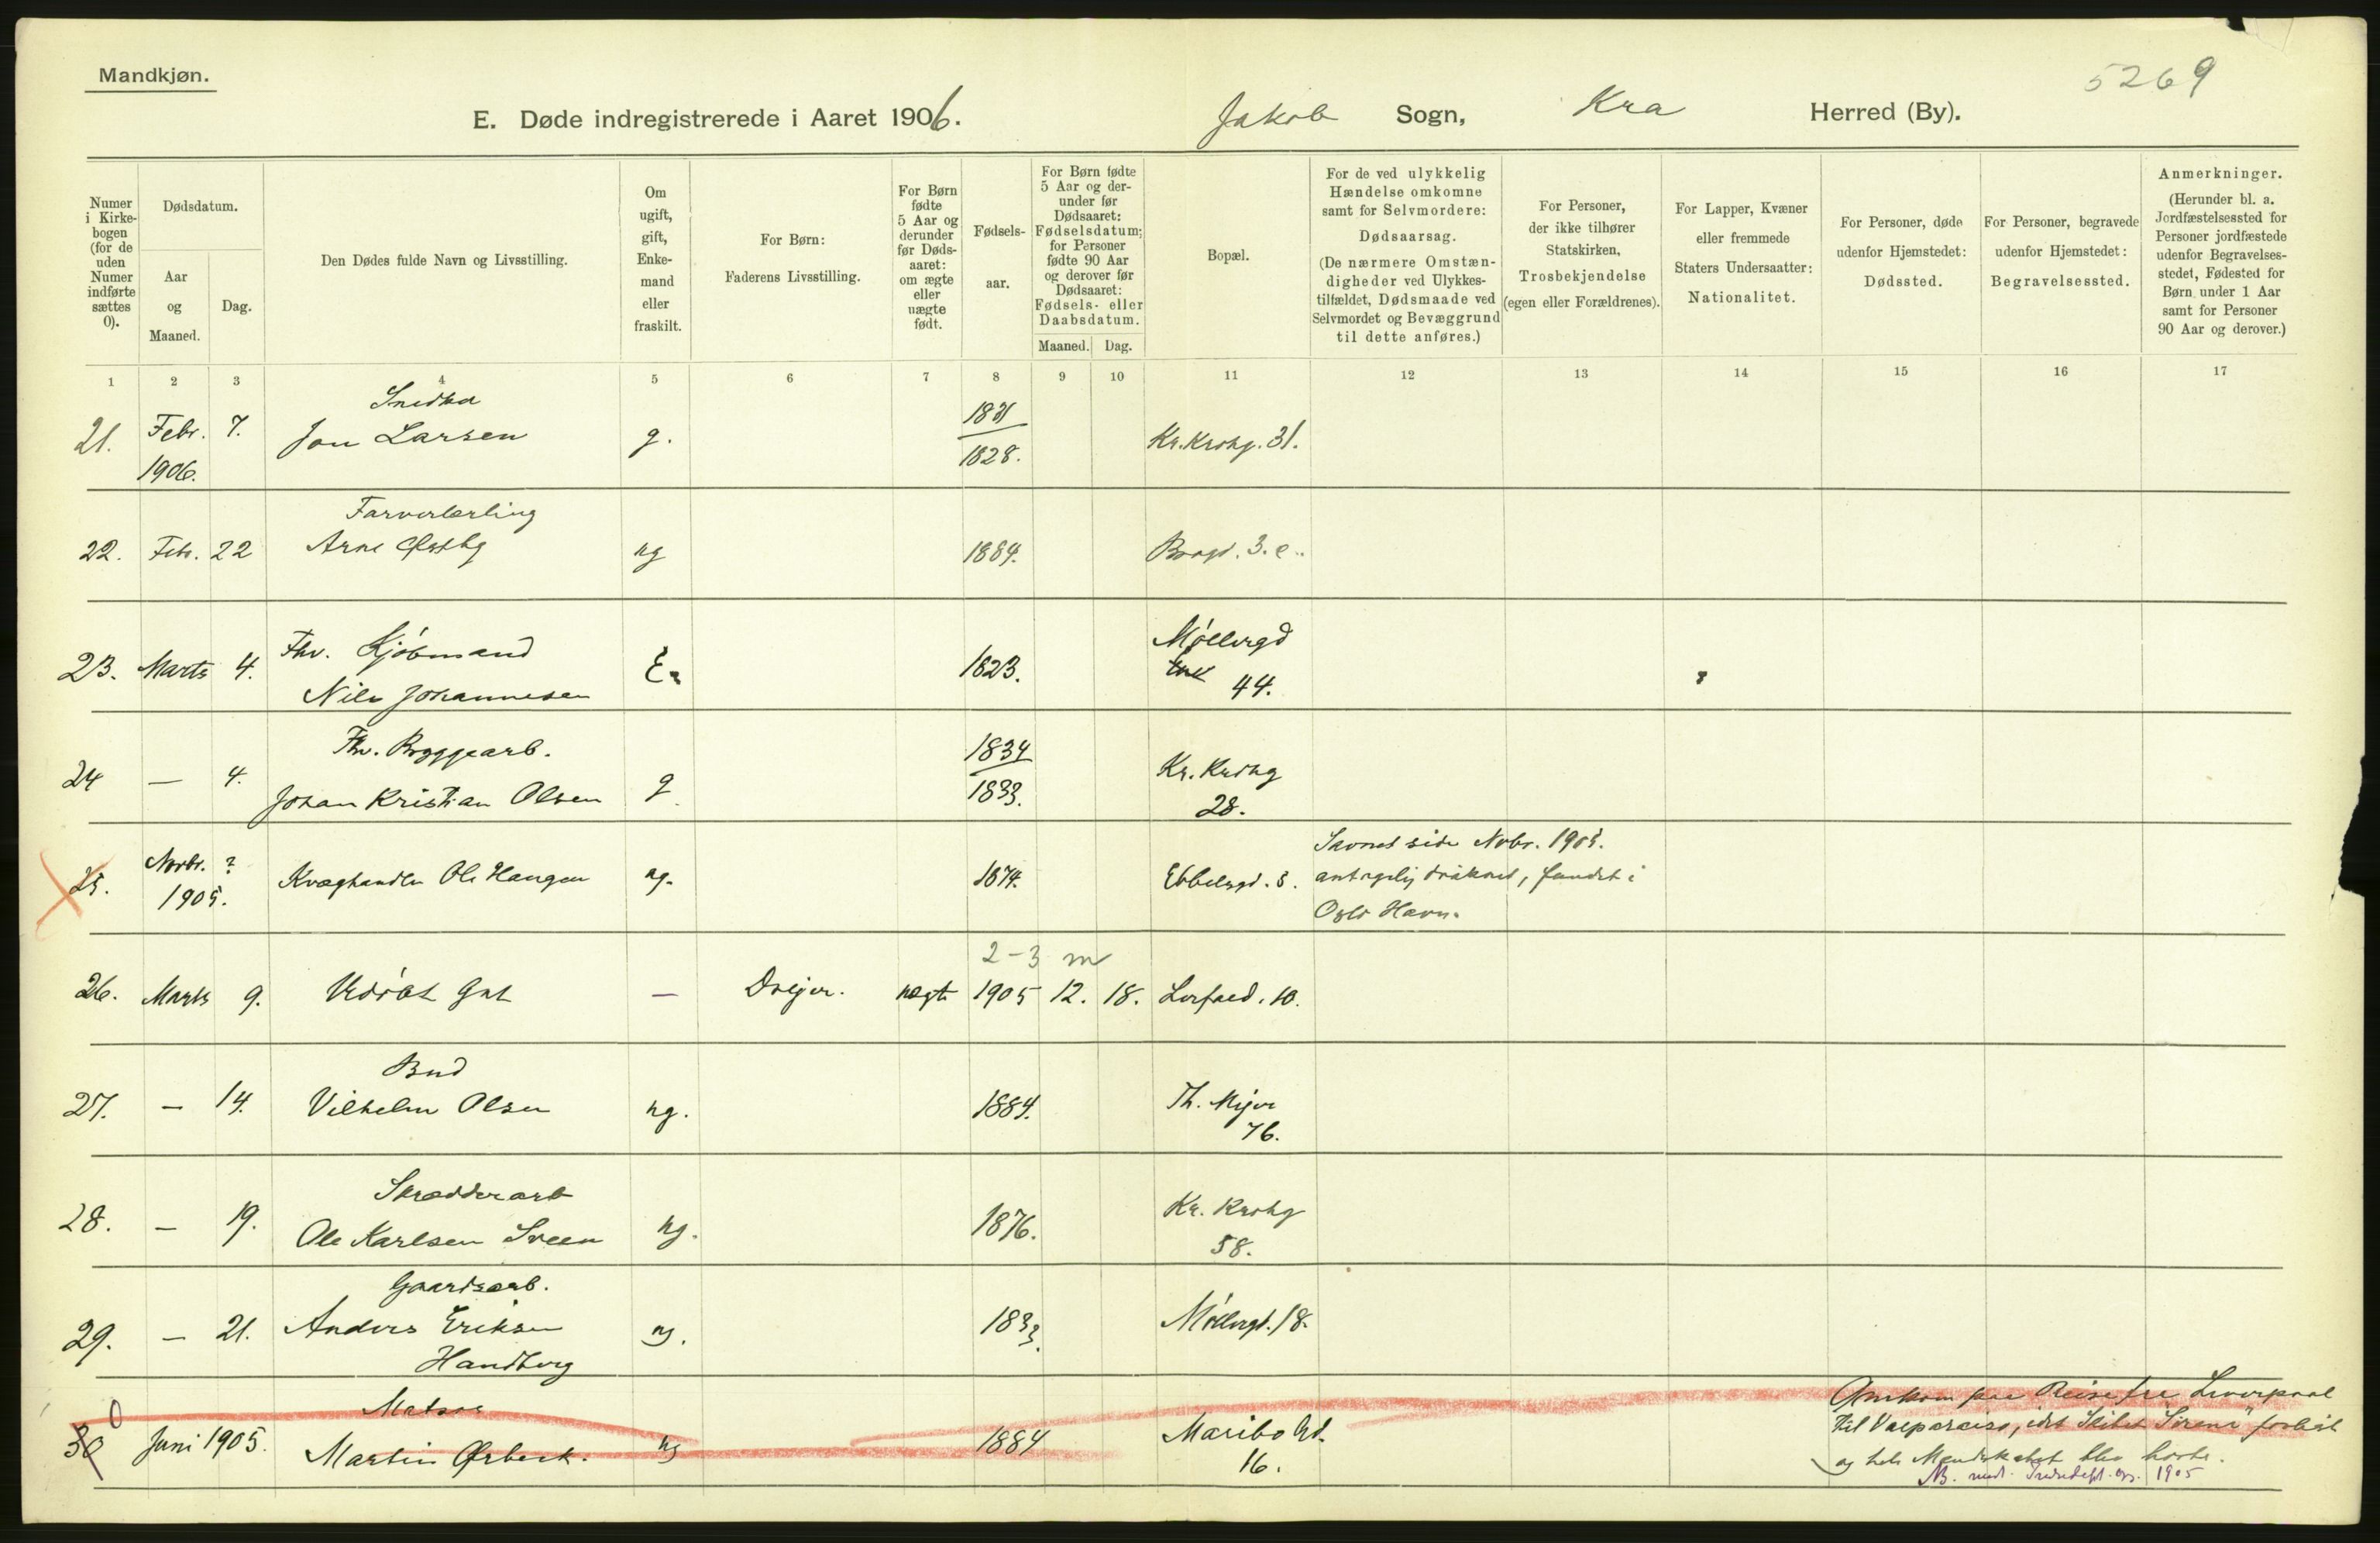 Mandkjøn.
5269
E. Døde indregistrerede i Aaret 1906. Jakob Sogn, Kra Herred (By).
Numer
i Kirke-
bogen
(for de
uden
Numer
indførte
sættes
0).
Dødsdatum.
Aar
og
Maaned.
Dag.
Den Dødes fulde Navn og Livsstilling.
Om
ugift,
gift,
Enke-
mand
eller
fraskilt.
For Børn:
Faderens Livsstilling.
For Børn
fødte
5 Aar og
derunder
før Døds-
aaret:
om ægte
eller
uægte
født.
Fødsels-
aar.
For Børn fødte
5 Aar og der-
under før
Dødsaaret:
Fødselsdatum;
for Personer
fødte 90 Aar
og derover før
Dødsaaret:
Fødsels- eller
Daabsdatum.
Maaned. Dag.
Bopæl.
For de ved ulykkelig
Hændelse omkomne
samt for Selvmordere:
Dødsaarsag.
(De nærmere Omstæn-
digheder ved Ulykkes-
tilfældet, Dødsmaade ved
Selvmordet og Bevæggrund
til dette anføres.)
For Personer,
der ikke tilhører
Statskirken,
Trosbekjendelse
(egen eller Forældrenes).
For Lapper, Kvæner
eller fremmede
Staters Undersaatter:
Nationalitet.
For Personer, døde
udenfor Hjemstedet:
Dødssted.
For Personer, begravede
udenfor Hjemstedet:
Begravelsessted.
Anmerkninger.
(Herunder bl. a.
Jordfæstelsessted for
Personer jordfæstede
udenfor Begravelses-
stedet, Fødested for
Børn under 1 Aar
samt for Personer
90 Aar og derover.)
1 2 3 4 5 6 7 8 9 10 11 12 13 14 15 16 17
Snedker
21. Febr. 7. Jon Larsen g. 1831 Kr. Krohg. 31.
1906. 1828.
Farverlærling
22. Febr. 22 Arne Østby ug 1884. Brogd. 3. e.
23. Marts 4. Fhv. Kjøbmand E. 1823. Møllergd
Nils Johannesen 44.
Fhv. Byggearb. 1834
24 — 4. Johan Kristian Olsen g. 1833. Kr. Krohg
28.
25. Novbr. ? Kvæghandler Ole Haugen ug. 1874. Ebbelsgd. 3. Savnet siden Novbr. 1905.
1905. antagelig druknet, fundet i
Oslo Havn.
2-3 m
26. Marts 9. Udøbt Gut — Drejer. uægte 1905 12. 18. Lerfald. 10.
Bud
27. — 14. Vilhelm Olsen ug. 1884. Th. Mejer
76.
Skrædderarb
28. — 19. Ole Karlsen Sveen ug. 1876. Kr. Krohg
58.
Gaardsarb.
29. — 21. Anders Eriksen ug. 1833. Møllergd. 18.
Handberg
Matros
30 0 Juni 1905. Martin Ørbeck. ug 1884 Maribo Gd.
16.
Omkom paa Reise fra Liverpool
til Valparaiso, idet Skibet "Sirena" forliste
og hele Mandskabet blev borte.
NB. 1905